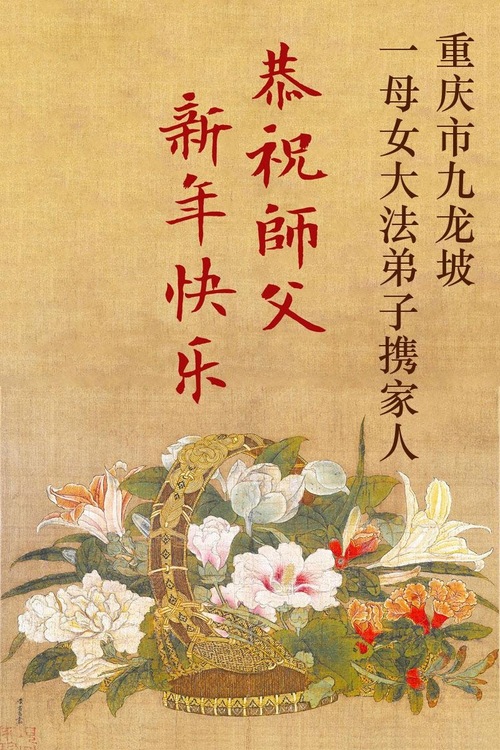 重庆市九龙坡
一母女大法弟子携家人
恭祝師父
新年快乐